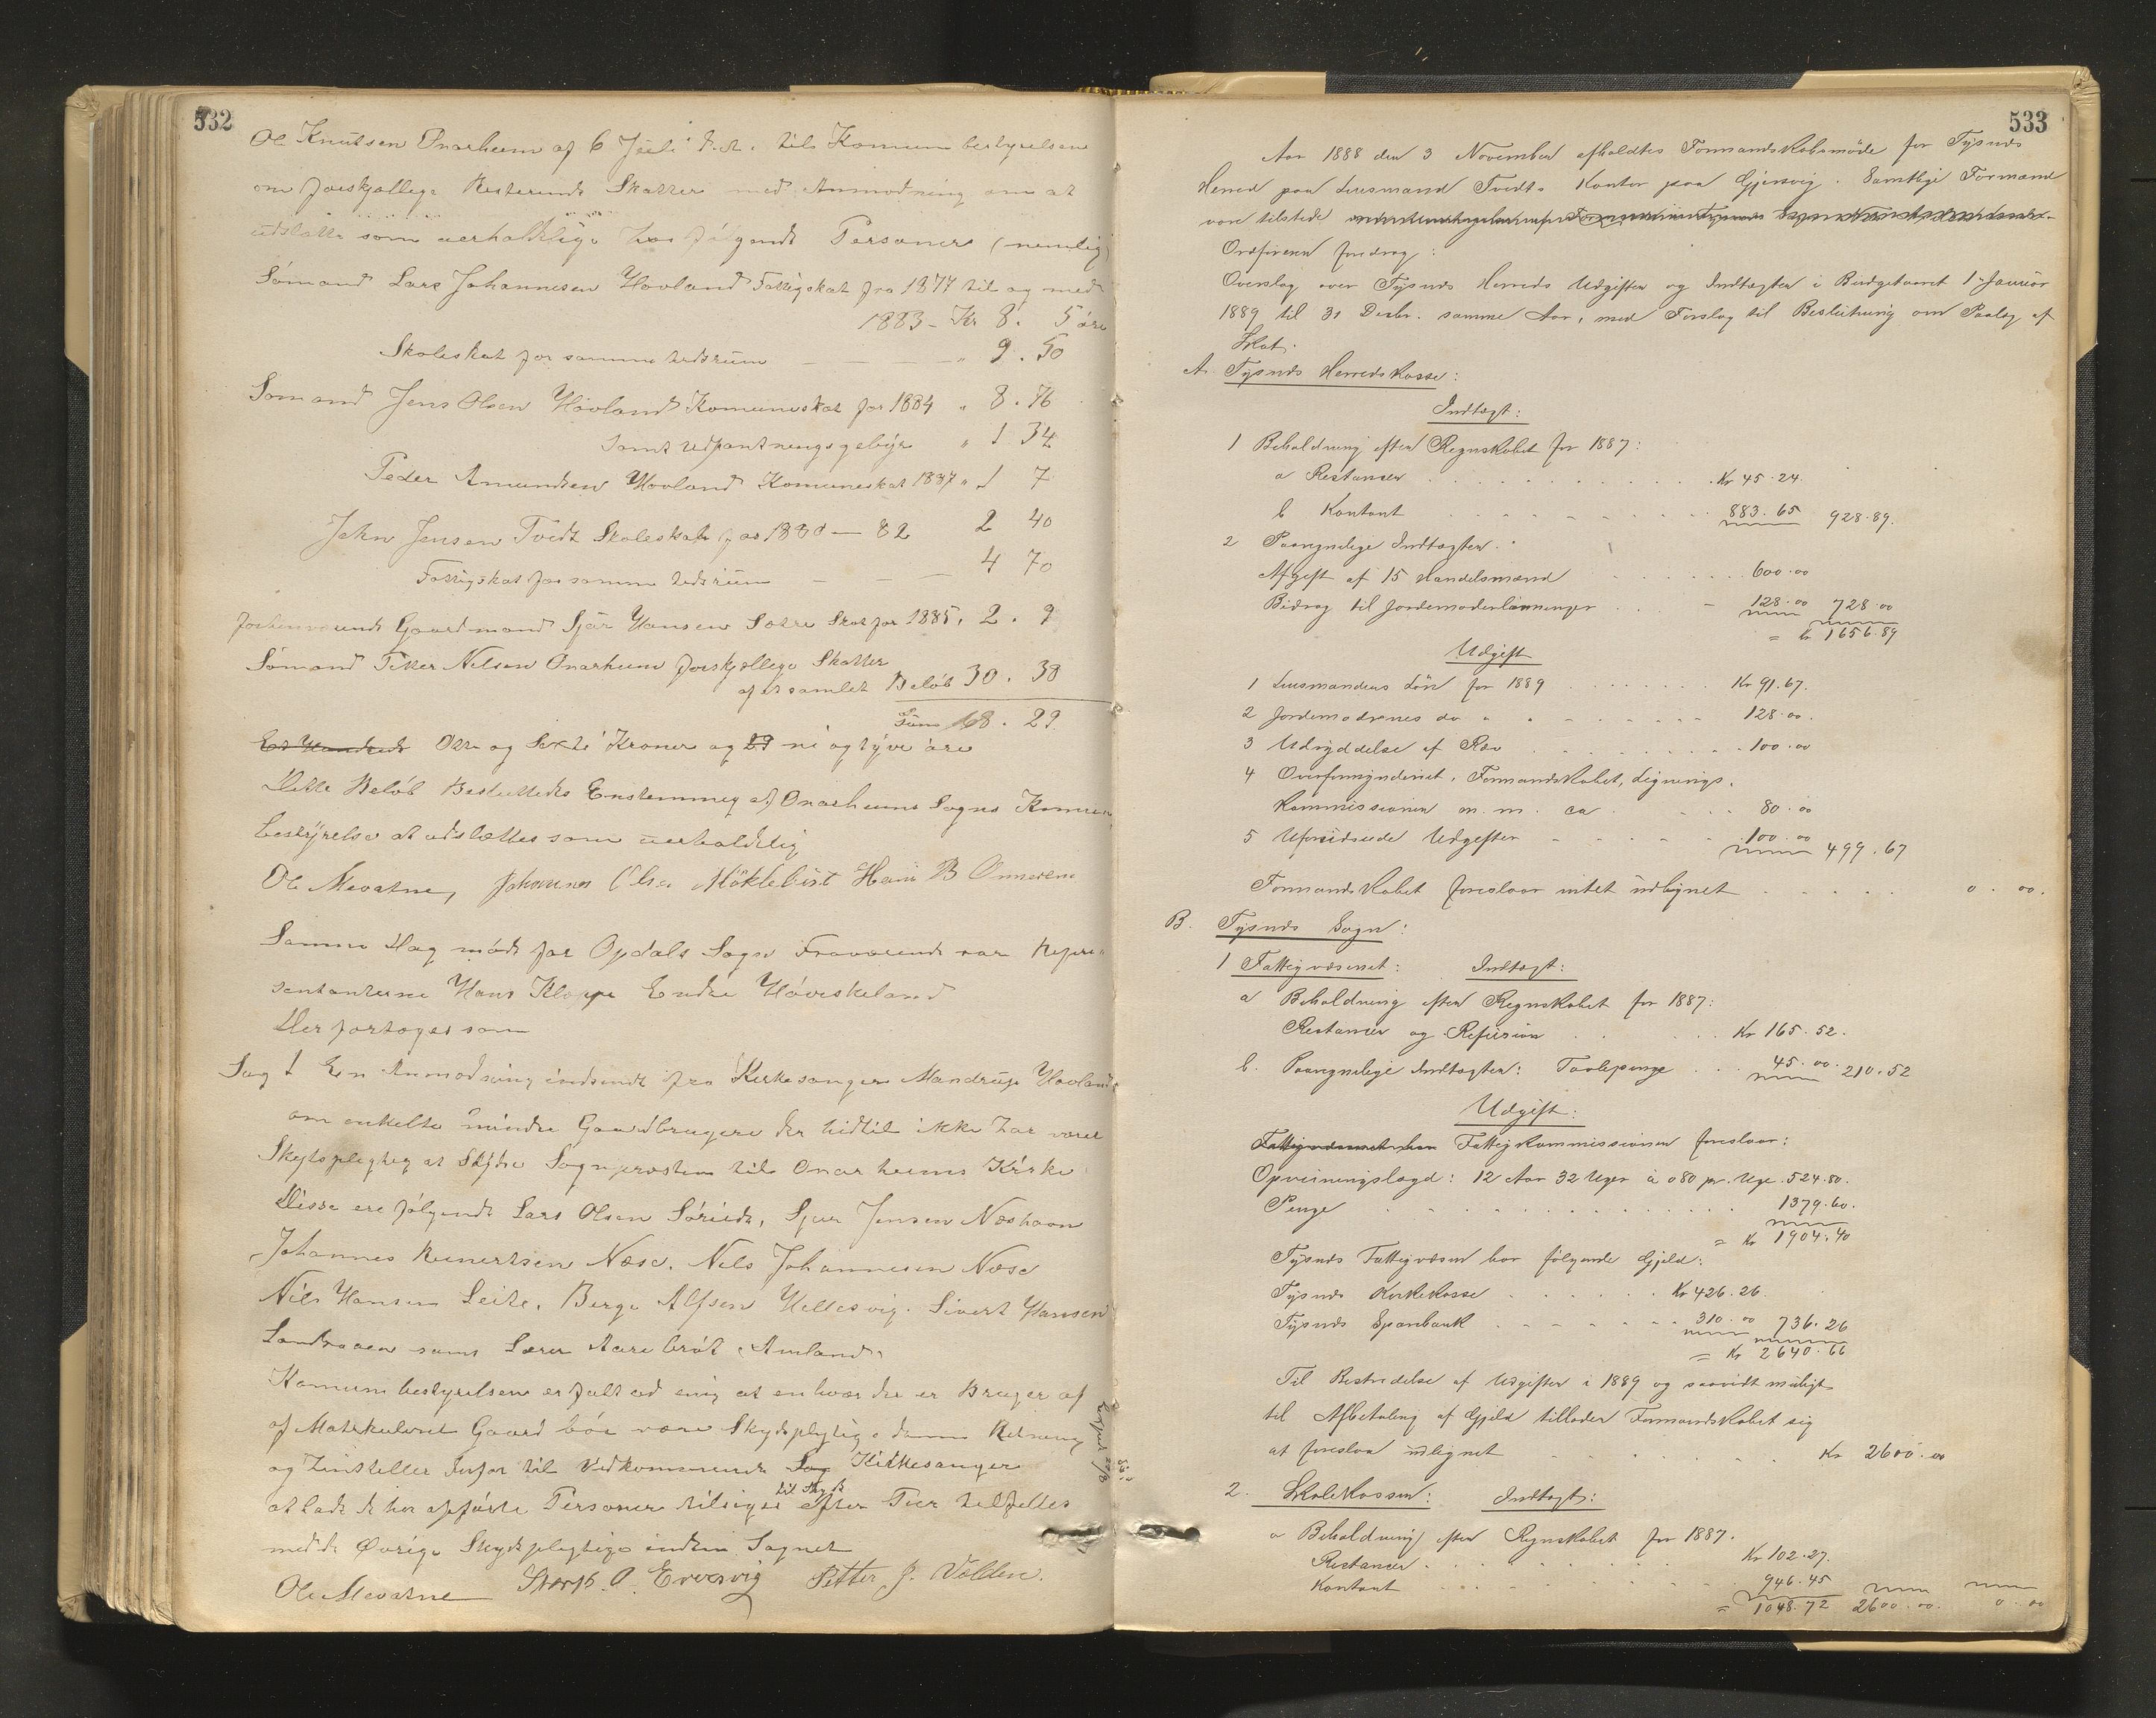 532
Ole Knutsen Onarheim af 6 Juli d.A. til Komunebestyrelsen
om forskjællige Resterende Skatter med Anmodning om at
udslætte som uerholdelige hos følgende Personer (nemlig)
Sømand Lars Johannesen Hovland Fattigskat fra 1877 til og med
1883 - Kr 8. 5 øre
Skoleskat for samme tidsrum — " 9. 50
Sømand Jens Olsen Hovland Komuneskat for 1884 " 8. 76
samt udpantningsgebyr " 1 34
Peder Amundsen Hovland Komuneskat 1887 " 1 7
John Jensen Tvedt Skoleskat for 1880 — 82 2 40
Fattigskat for samme tidsrum — — — 4 70
Gaardmand Sjur Hansen Sætre Skat for 1885. 2. 9
Sømand Titter Nilsen Onarheim forskjællige Skatter
af et samlet Beløb 30. 38
Sum 68. 29
Et Hundrede Otte og Sexti Kroner og 29 ni og tyve øre
Dette Beløb Besluttedes Enstemmig af Onarheims Sogns Komune
bestyrelse at udslættes som uerholdelig
Ole Mevatne, Johannes Olsen Møklebust Hans B Onnereim
Samme Dag møde for Opdals Sogn Fraværende var Repræ
sentanterne Hans Kloppe Endre Höviskeland
Der foretoges som
Sag 1 En Anmodning indsendt fra Kirkesanger Mandrup Hovland
om enkelte mindre Gaardbrugere der hidtil ikke har været
Skydspligtig at Skydse Sognepresten til Onarheims Kirke
Disse ere følgende Lars Olsen Søriede, Sjur Jensen Neshavn
Johannes Reinertsen Næse. Nils Johannesen Næse
Nils Hansen Leite. Berge Alfsen Hellesvig. Sivert Hansen
Landraaen samt Lærer Aarebrot (Amland)
Komunebestyrelsen er fult ud enig at enhver der er Bruger af
af Matrikuleret Gaard bör være Skydspligtige i denne Retning
og henstiller derfor til Vedkommende Sog Kirkesanger
at lade de her opførte Personer tilsiges til Skyds efter Tur tilfelles
med de Øvrige Skydspligtige inden Sognet
Ole Mevatne Størk O. Ervesvig Petter J. Vollen.
533
Aar 1888 den 3 November afholdtes Formandskabsmöde for Tysnes
Herred paa Lensmand Tvedts Kontor paa Gjersvig. Samtlige Formænd
vare tilstede
Ordføreren foredrog:
Overslag over Tysnes Herreds Udgifter og Indtægter i Budgetaaret 1ste Januar
1889 til 31 Decbr. samme Aar, med Forslag til Beslutning om Paalæg af
Skat.
A. Tysnes Herredskasse:
Indtægt:
1 Beholdning efter Regnskabet for 1887:
a Restancer . . . Kr 45.24.
b Kontant . . . 883.65 928.89.
2 Paaregnelige Indtægter.
Afgift af 15 Handelsmænd . . . 600.00
Bidrag til Jordemoderlønninger . . . 128.00 728.00
= Kr 1656.89
Udgift
1 Lensmandens Løn for 1889 . . . Kr 91.67.
2 Jordemødrenes do " . . . 128.00.
3 Udryddelse af Ræv . . . 100.00
4 Overformynderiet, Formandskabet, Lignings.
Kommissionen m. m. ca . . . 80.00
5 Uforudseede Udgifter . . . 100.00 499.67
Formandskabet foreslaar intet udlignet . . . 0.00.
B. Tysnes Sogn:
1 Fattigvæsenet: Indtægt:
a Beholdning efter Regnskabet for 1887:
Restancer og Refusion . . . Kr 165.52.
b. Paaregnelige Indtægter: Tavlepenge . . . 45.00. 210.52
Udgift:
Fattigvæsenet har Fattigkommissionen foreslaar:
Opviisningslægd: 12 Aar 32 Uger à 080 pr. Uge. 524.80.
Penge . . . 1379.60.
= Kr 1904.40
Tysnes Fattigvæsen har følgende Gjeld:
Tysnes Kirkekasse . . . Kr 426.26.
Tysnes Sparebank . . . 310.00 736.26
= Kr 2640.66
Til Bestridelse af Udgifter i 1889 og saavidt muligt
til Afbetaling af Gjeld tillader Formandskabet sig
at foreslaa udlignet . . . Kr 2600.00
2. Skolekassen: Indtægt:
a Beholdning efter Regnskabet for 1887.
Restancer . . . Kr 102.27.
Kontant . . . 946.45
= 1048.72 2600.00. 0.00